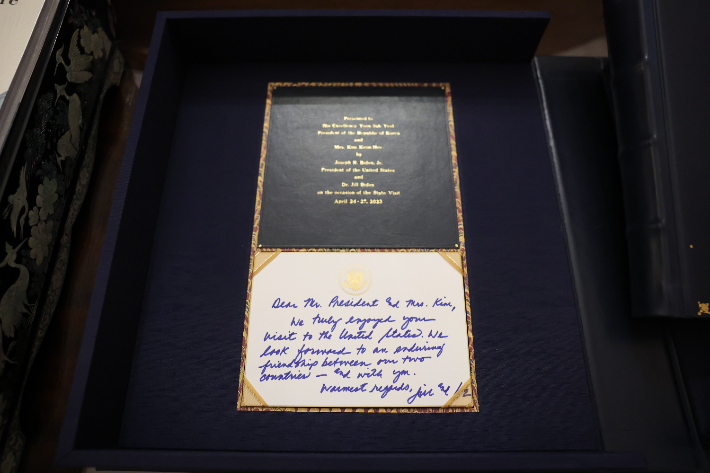 Presented to
His Excellency Yoon Suk Yeol
President of the Republic of Korea
and
Mrs. Kim Keon Hee
by
Joseph R. Biden, Jr.
President of the United States
and
Dr. Jill Biden
on the occasion of the State Visit
April 24-27, 2023
Dear Mr. President and Mrs. Kim,
We truly enjoyed your
visit to the United States. We
look forward to an enduring
friendship between our two
countries — and with you.
Warmest regards, Jill and